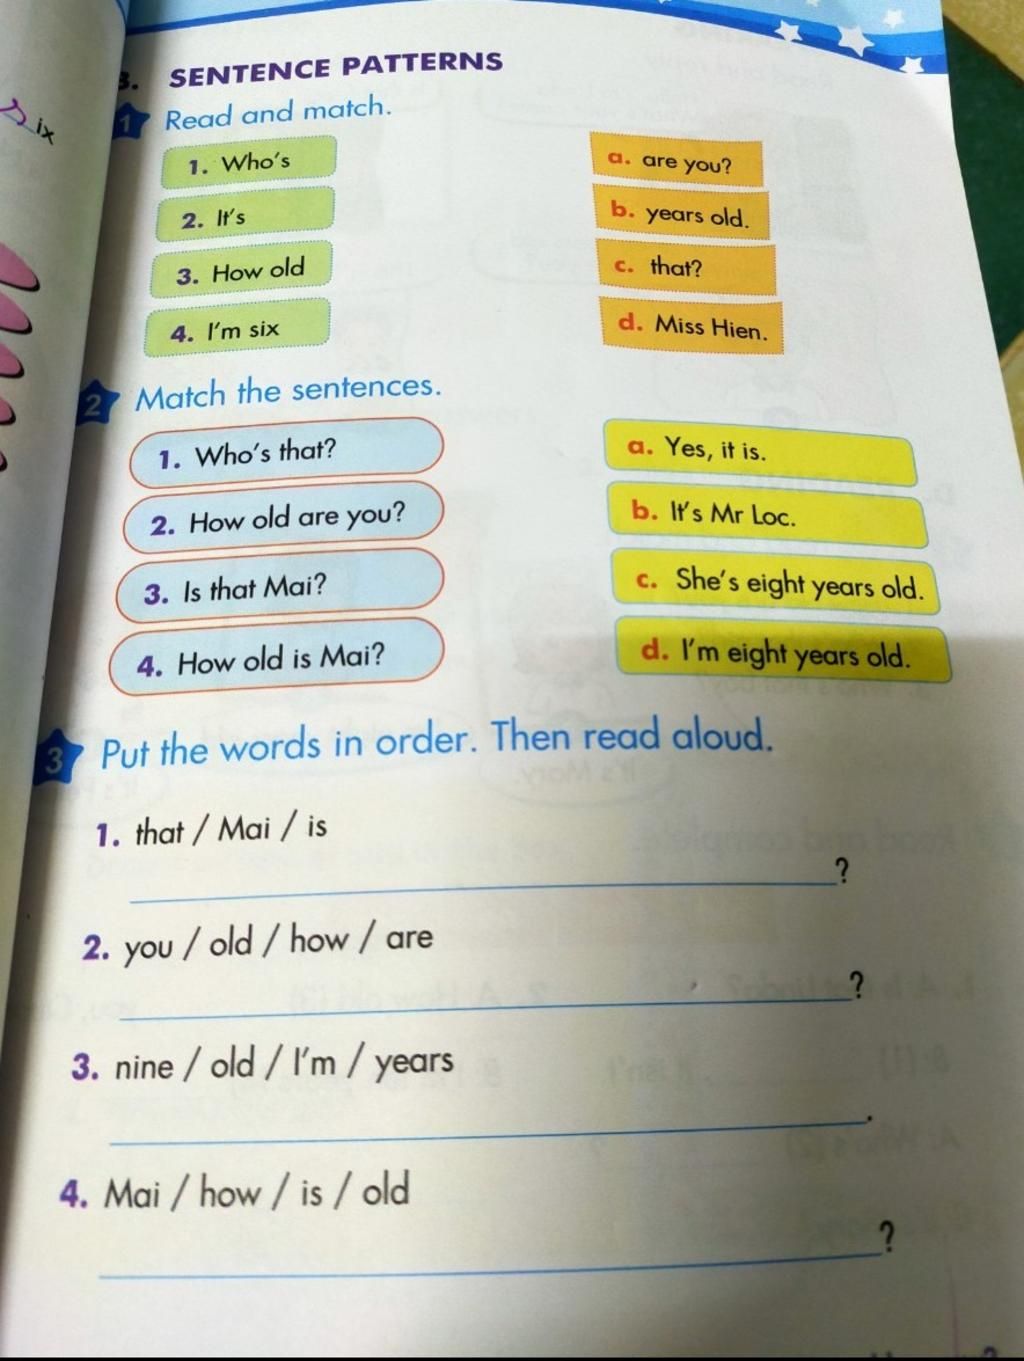 B. SENTENCE PATTERNS
1 Read and match.
1. Who's
a. are you?
2. It's
b. years old.
3. How old
c. that?
4. I'm six
d. Miss Hien.
2 Match the sentences.
1. Who's that?
a. Yes, it is.
2. How old are you?
b. It's Mr Loc.
3. Is that Mai?
c. She's eight years old.
4. How old is Mai?
d. I'm eight years old.
3 Put the words in order. Then read aloud.
1. that / Mai / is
?
2. you / old / how / are
?
3. nine / old / I'm / years
.
4. Mai / how / is / old
?
ix